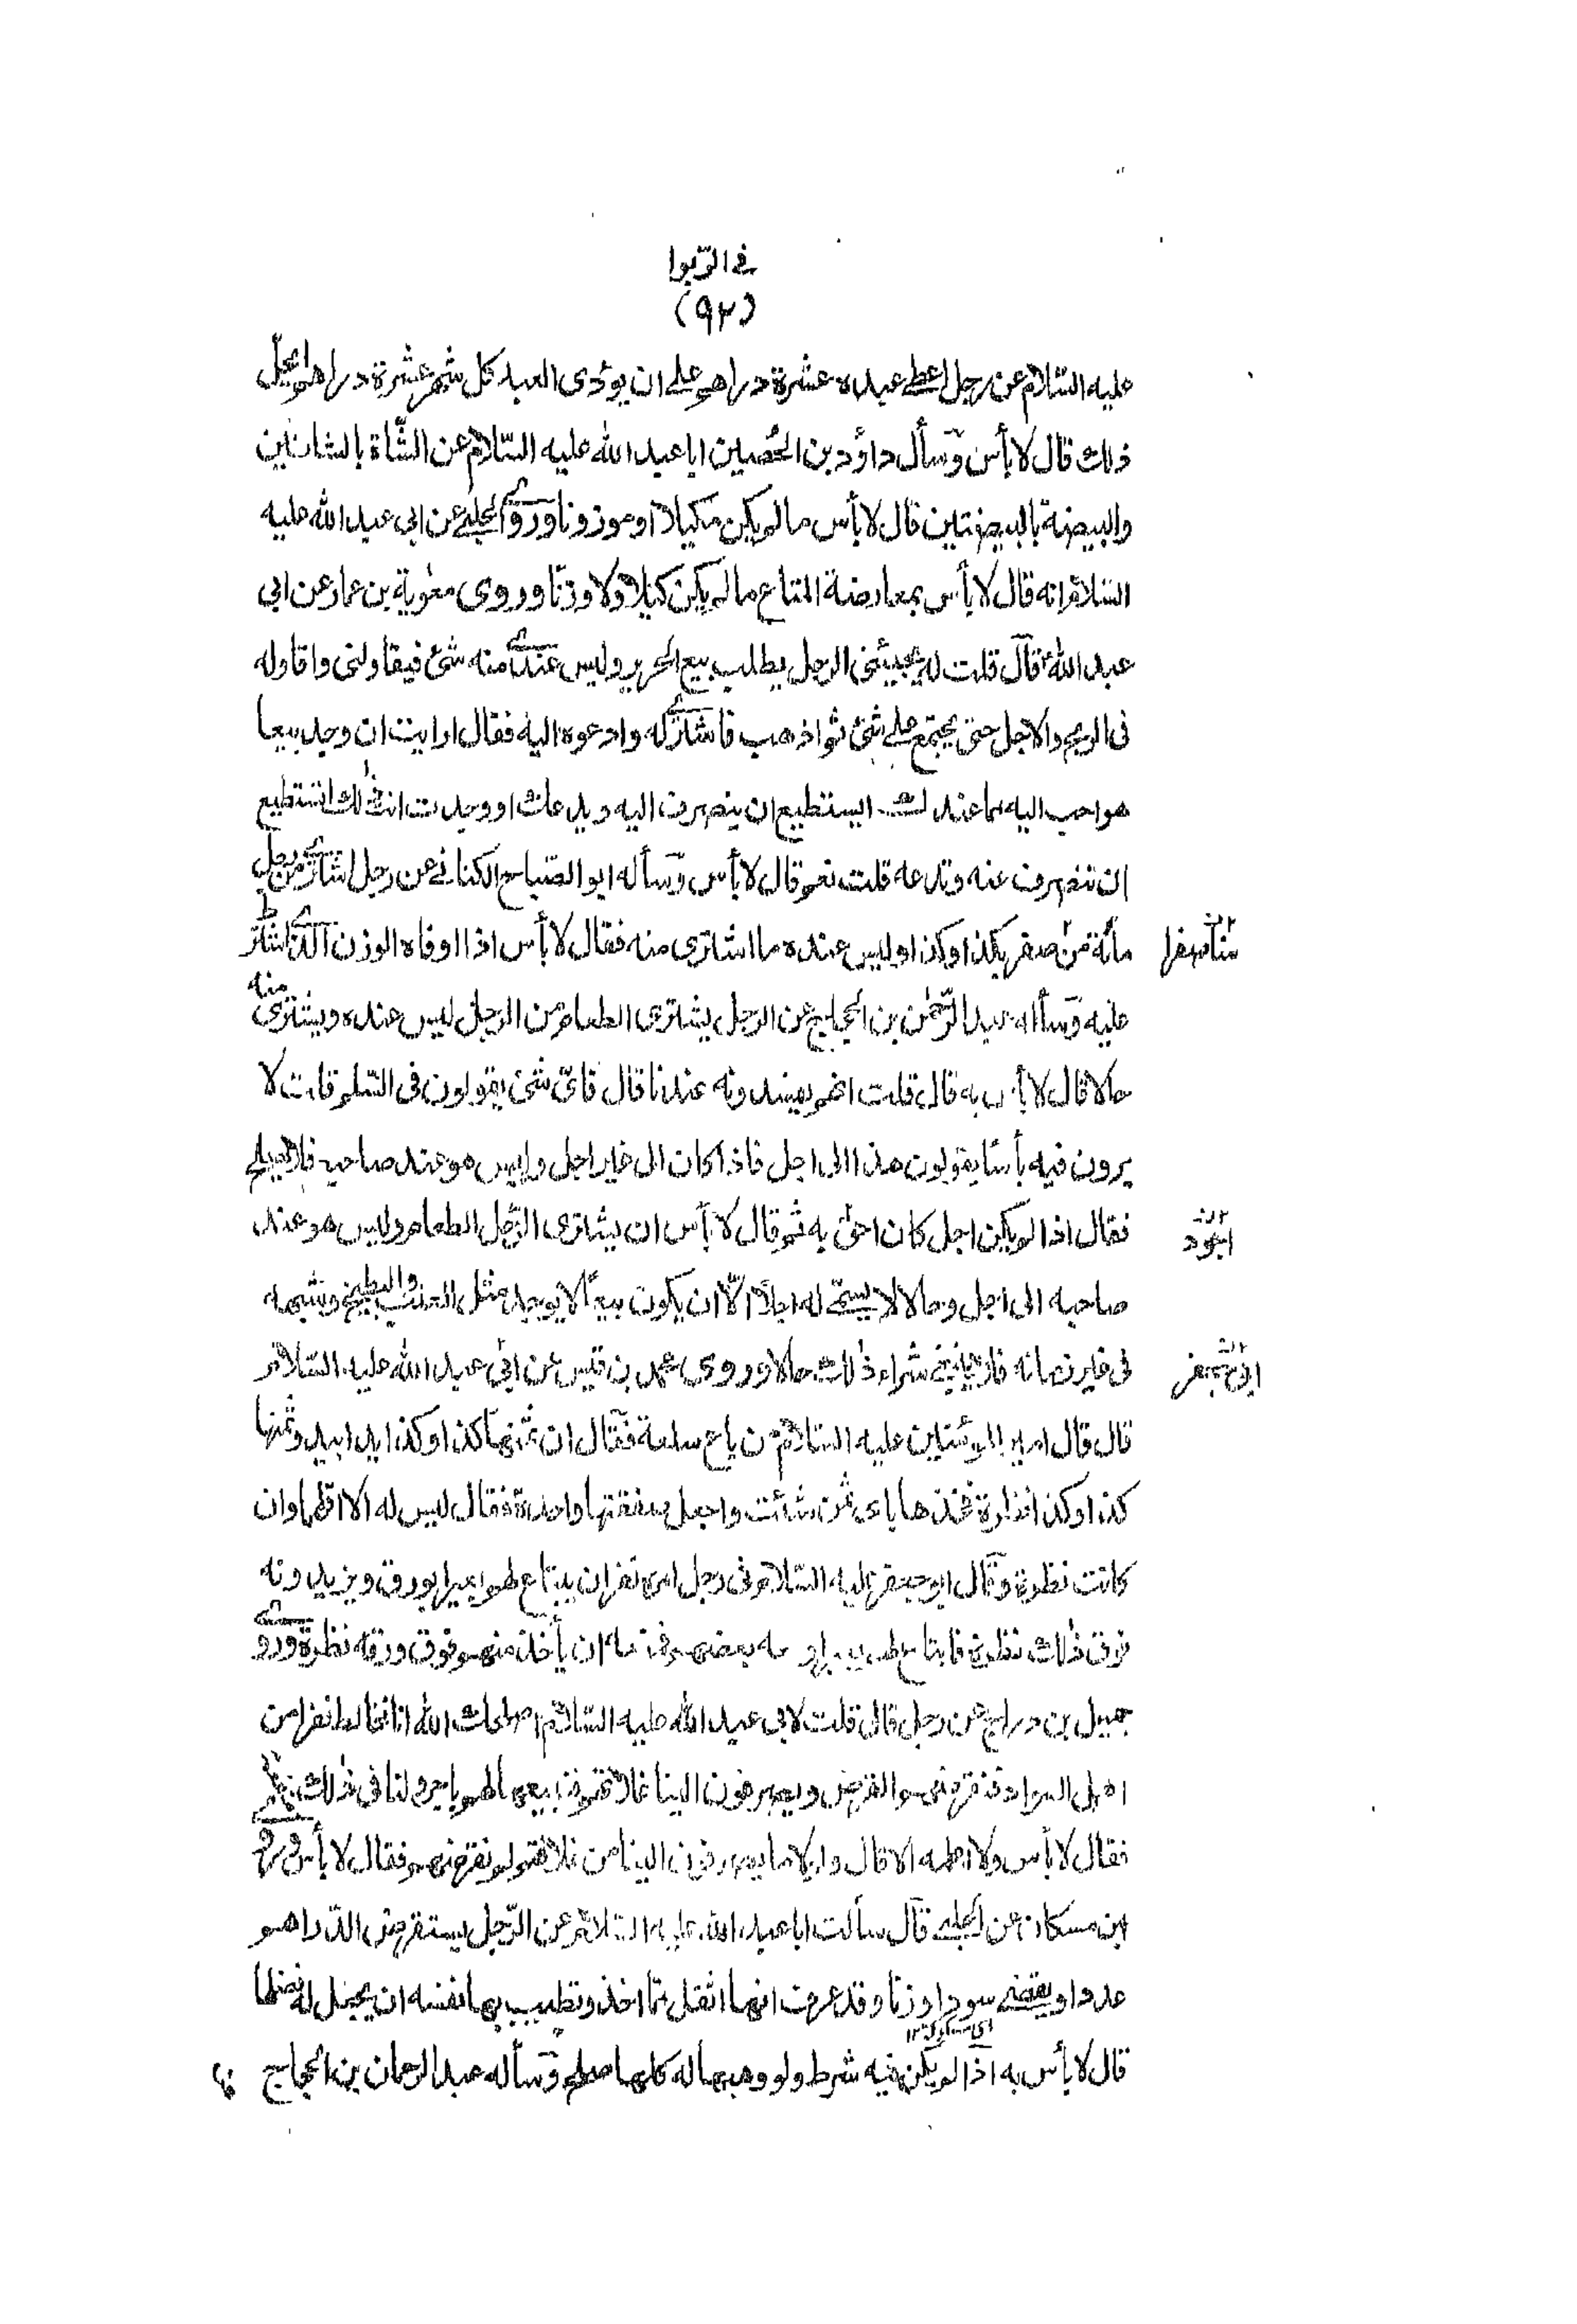 في الربوا
(٩٢)
عليه السّلام عن رجل اعطى عبده عشرة دراهم على ان يؤدى العبد كل شهر عشرة دراهم أيحلّ
ذلك قال لا بأس وسأل داؤد بن الحُصين ابا عبد الله عليه السّلام عن الشّاة بالشاتين
والبيضة بالبيضتين قال لا بأس ما لم يكن مكيلا او موزونا وروى الحلبي عن ابي عبد الله عليه
السّلام انه قال لا بأس بمعارضة المتاع ما لم يكن كيلا ولا وزنا وروى معٰوية بن عمار عن ابي
عبد الله ع قال قلت له يجيئني الرجل يطلب بيع الحرير وليس عندى منه شئ فيقاولنى واقاوله
فى الربح والاجل حتى يجتمع على شئ ثم اذهب فاشترى له وادعوه اليه فقال ارايت ان وجد بيعا
هو احب اليه مما عندك ايستطيع ان ينصرف اليه ويدعك او وجدت انت ذٰلك اتستطيع
ان تنصرف عنه وتدعه قلت نعم قال لا بأس وسأله ابو الصّباح الكناني عن رجل اشترى من رجل
مائة منّ صفر بكذا وكذا وليس عنده ما اشترى منه فقال لا بأس اذا اوفاه الوزن الذى اشترط
منا صفرا
عليه وسأله عبد الرّحمٰن بن الحجاج عن الرجل يشترى الطعام من الرجل ليس عنده ويشترى منه
حالا قال لا بأس به قال قلت انهم يفسدونه عندنا قال فاىّ شئ يقولون فى السّلم قلت لا
يرون فيه بأسا يقولون هذا الى اجل فاذا كان الى غير اجل وليس هو عند صاحبه فلا يصلح
فقال اذا لم يكن اجل كان احقّ به ثم قال لا بأس ان يشترى الرّجل الطعام وليس هو عند
اجود
صاحبه الى اجل وحالا لا يسمّى له اجلا الّا ان يكون بيعا لا يوجد مثل العنب والبطيخ وشبهه
فى غير زمانه فلا ينبغي شراء ذٰلك حالا وروى محمد بن قيس عن ابي عبد الله عليه السّلام
ابى جعفر
قال قال امير المؤمنين عليه السّلام من باع سلعة فقال ان ثمنها كذا وكذا يدا بيد وثمنها
كذا وكذا نظرة فخذها باى ثمن شئت واجعل صفقتها واحدة فقال ليس له الا اقلهما وان
كانت نظرة وقال ابو جعفر عليه السّلام فى رجل امره نفر ان يبتاع لهم بعيرا بورق ويزيدونه
فوق ذٰلك نظرة فابتاع لهم بعيرا ومعه بعضهم فمنعه ان يأخذ منهم فوق ورقه نظرة وروى
جميل بن دراج عن رجل قال قلت لابى عبد الله عليه السّلام اصلحك الله انا نخالط نفرا من
اهل السواد فنقرضهم القرض ويصرفون الينا غلاتهم فنبيعها لهم باجر ولنا فى ذٰلك
فقال لا بأس ولا اعلمه الا قال ولولا ما يصرفون الينا من غلاتهم لم نقرضهم فقال لا بأس وروى
ابن مسكان عن الحلبي قال سألت ابا عبد الله عليه السّلام عن الرّجل يستقرض الدّراهم
عددا ويقضى سودا وزنا وقد عرف انها اثقل ممّا اخذ وتطيب بها نفسه ان يجعل له فضلها
قال لا بأس به اذا لم يكن فيه شرط ولو وهبها له كلها صلح وسأله عبد الرحمان بن الحجاج